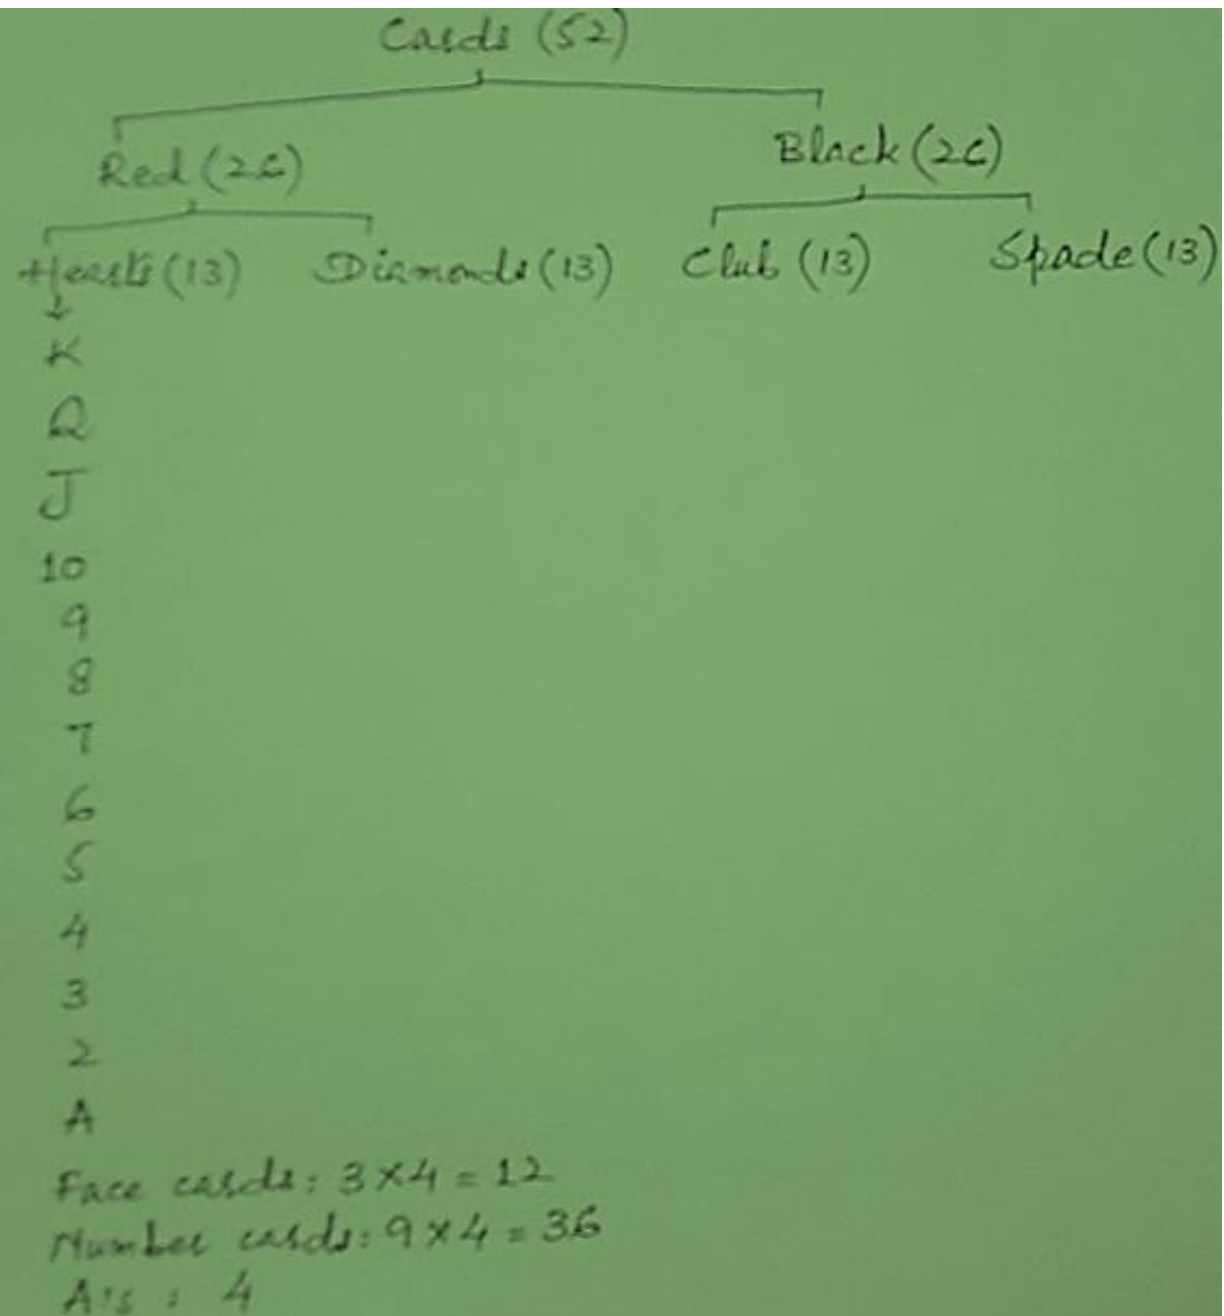 Cards (52)
Red (26) Black (26)
Hearts (13) Diamonds (13) Club (13) Spade (13)
K
Q
J
10
9
8
7
6
5
4
3
2
A
Face cards: 3×4 = 12
Number cards: 9×4 = 36
A's : 4